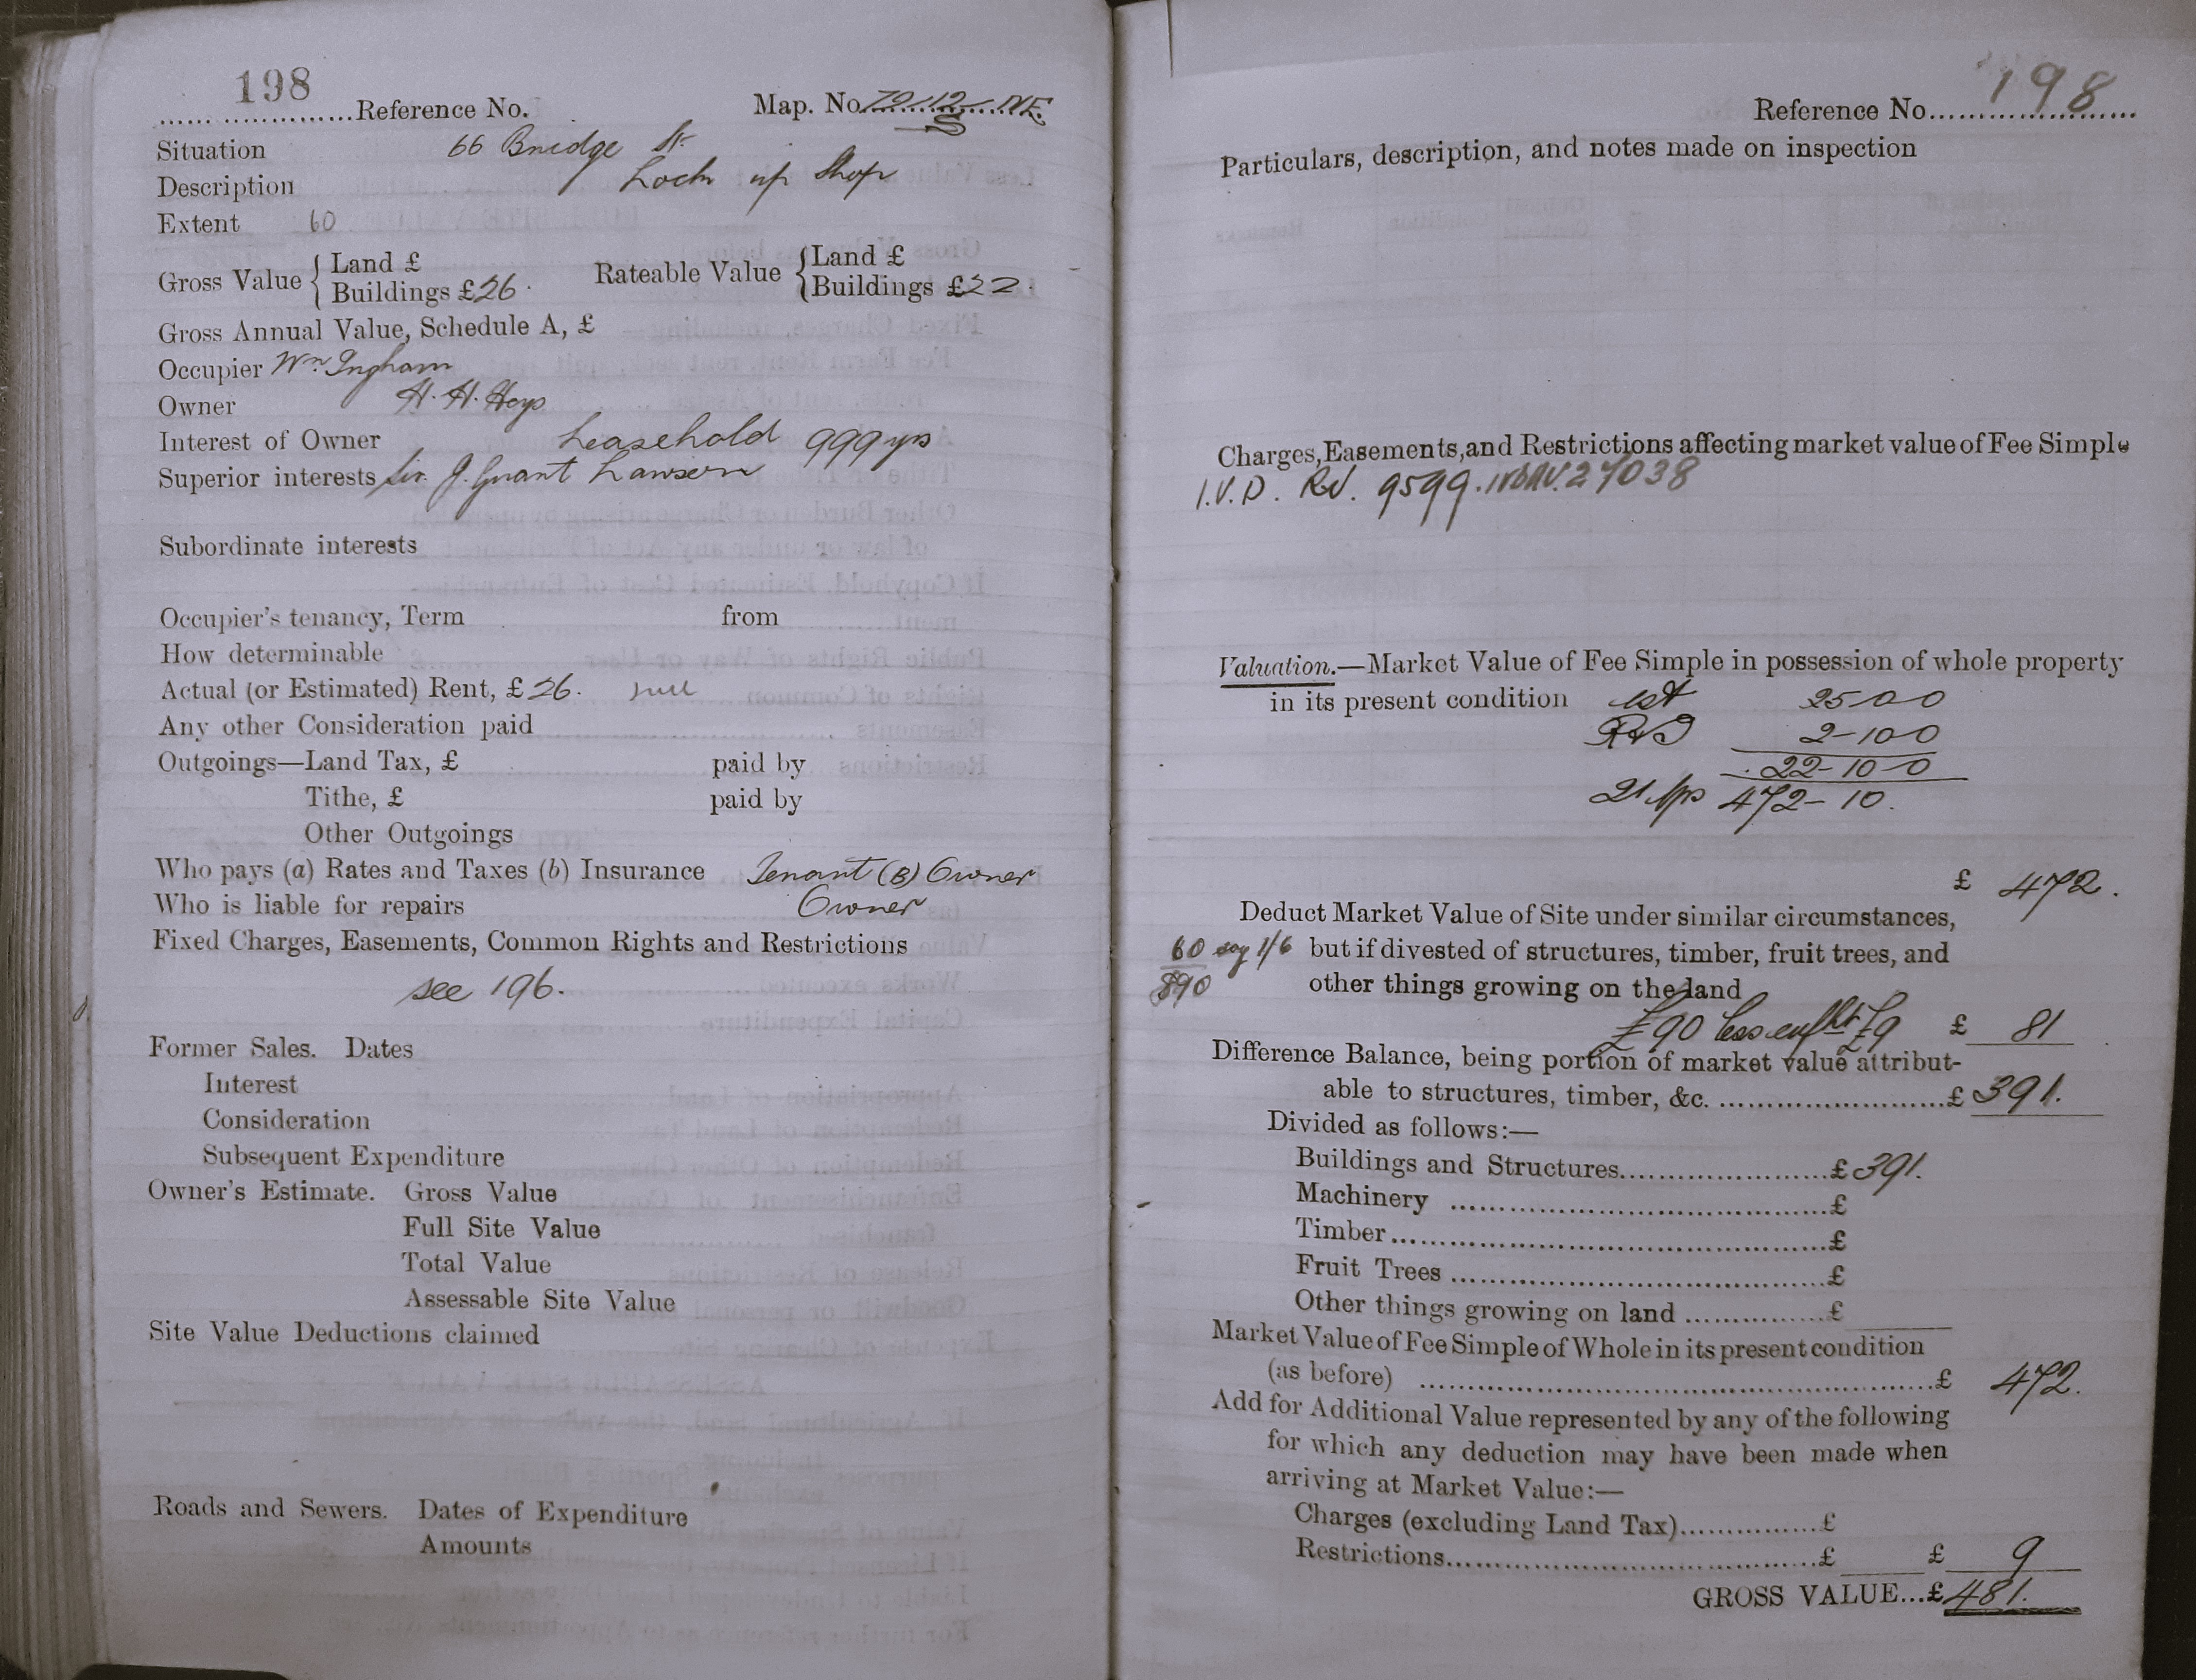 198
Reference No. Map. No 12 NE.
Situation 66 Bridge St.
Description Lock up Shop
Extent 60
Gross Value { Land £ Rateable Value { Land £
Buildings £26. Buildings £22.
Gross Annual Value, Schedule A, £
Occupier Wm. Ingham
Owner H. H. Hoys
Interest of Owner Leasehold 999 yrs
Superior interests Sir. J. Grant Lawson
Subordinate interests
Occupier's tenancy, Term from
How determinable
Actual (or Estimated) Rent, £26.
Any other Consideration paid
Outgoings—Land Tax, £ paid by
Tithe, £ paid by
Other Outgoings
Who pays (a) Rates and Taxes (b) Insurance Tenant (B) Owner
Who is liable for repairs Owner
Fixed Charges, Easements, Common Rights and Restrictions
see 196.
Former Sales. Dates
Interest
Consideration
Subsequent Expenditure
Owner's Estimate. Gross Value
Full Site Value
Total Value
Assessable Site Value
Site Value Deductions claimed
Roads and Sewers. Dates of Expenditure
Amounts
Reference No. 198
Particulars, description, and notes made on inspection
Charges, Easements, and Restrictions affecting market value of Fee Simple
I.V.D. RV. 9599. 27038
Valuation.—Market Value of Fee Simple in possession of whole property
in its present condition 25 0 0
2-10 0
22-10 0
21 yps 472-10.
£ 472.
Deduct Market Value of Site under similar circumstances,
60 say 1/6 but if divested of structures, timber, fruit trees, and
£90 other things growing on the land
£90 less £9 £ 81
Difference Balance, being portion of market value attribut-
able to structures, timber, &c. £391.
Divided as follows:—
Buildings and Structures £391.
Machinery £
Timber £
Fruit Trees £
Other things growing on land £
Market Value of Fee Simple of Whole in its present condition
(as before) £ 472.
Add for Additional Value represented by any of the following
for which any deduction may have been made when
arriving at Market Value:—
Charges (excluding Land Tax) £
Restrictions £ £ 9
GROSS VALUE...£481.